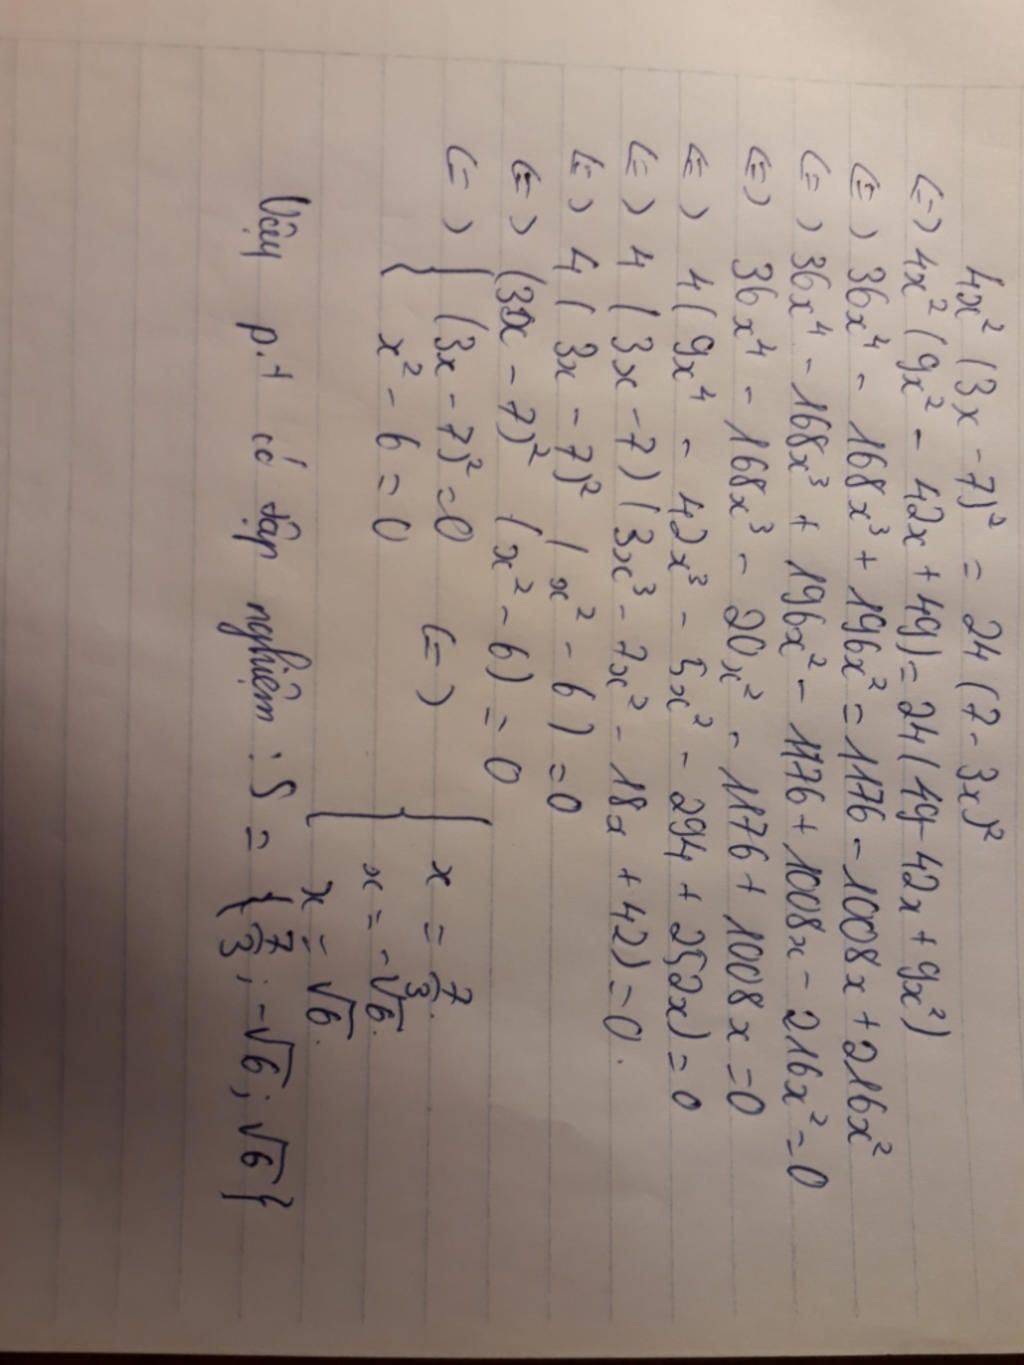 4x² (3x - 7)² = 24 (7 - 3x)²
(=) 4x² (9x² - 42x + 49) = 24 (49 - 42x + 9x²)
(=) 36x⁴ - 168x³ + 196x² = 1176 - 1008x + 216x²
(=) 36x⁴ - 168x³ + 196x² - 1176 + 1008x - 216x² = 0
(=) 36x⁴ - 168x³ - 20x² - 1176 + 1008x = 0
(=) 4 (9x⁴ - 42x³ - 5x² - 294 + 252x) = 0
(=) 4 (3x - 7) (3x³ - 7x² - 18x + 42) = 0.
(=) 4 (3x - 7)² (x² - 6) = 0
(=) (3x - 7)² (x² - 6) = 0
(=) { (3x - 7)² = 0 (=) { x = 7/3.
x² - 6 = 0 x = -√6.
x = √6.
Vậy p.t có tập nghiệm : S = { 7/3 ; -√6 ; √6 }